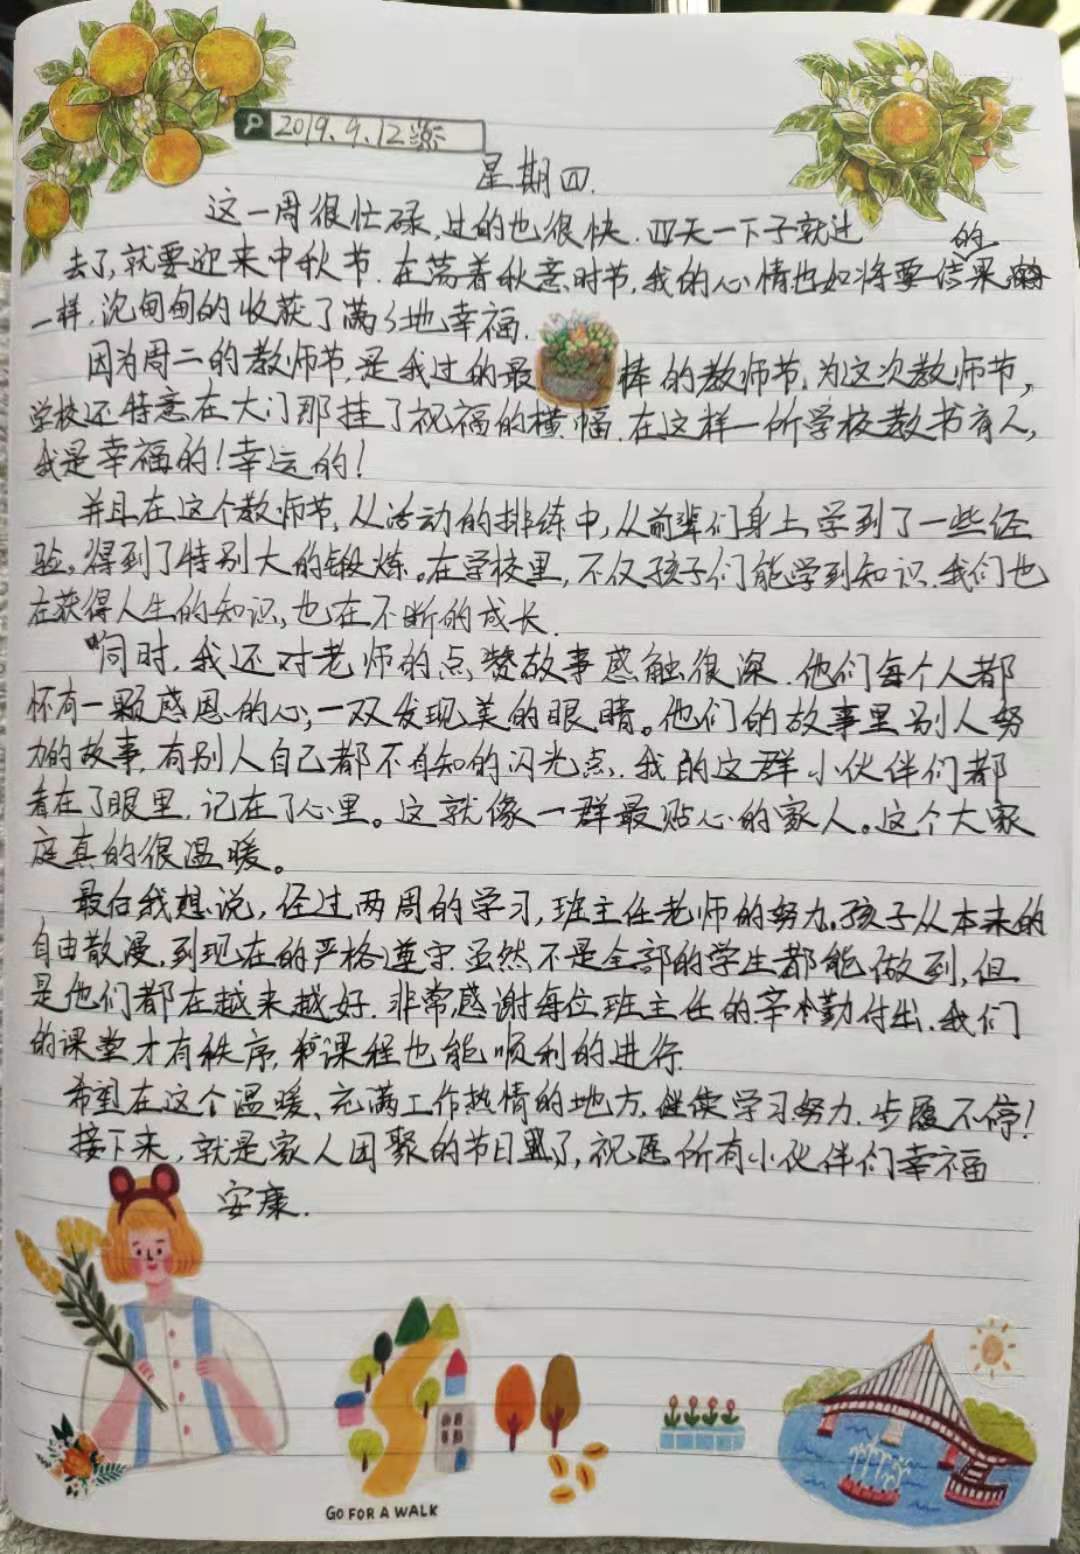 2019.9.12
星期四.
这一周很忙碌,过的也很快.四天一下子就过
去了,就要迎来中秋节.在荡着秋意时节,我的心情也如将要结果的
一样,沉甸甸的收获了满满地幸福.
因为周二的教师节,是我过的最棒的教师节,为这次教师节,
学校还特意在大门那挂了祝福的横幅.在这样一所学校教书育人,
我是幸福的!幸运的!
并且在这个教师节,从活动的排练中,从前辈们身上学到了一些经
验。得到了特别大的锻炼。在学校里,不仅孩子们能学到知识.我们也
在获得人生的知识,也在不断的成长.
同时,我还对老师的点赞故事感触很深.他们每个人都
怀有一颗感恩的心,一双发现美的眼睛。他们的故事里别人努
力的故事,有别人自己都不自知的闪光点.我的这群小伙伴们都
看在了眼里,记在了心里。这就像一群最贴心的家人。这个大家
庭真的很温暖。
最后我想说,经过两周的学习,班主任老师的努力。孩子从本来的
自由散漫,到现在的严格遵守.虽然不是全部的学生都能做到,但
是他们都在越来越好.非常感谢每位班主任的辛勤付出.我们
的课堂才有秩序,课程也能顺利的进行.
希望在这个温暖、充满工作热情的地方,继续学习努力.步履不停!
接下来,就是家人团聚的节日了,祝愿所有小伙伴们幸福
安康.
GO FOR A WALK